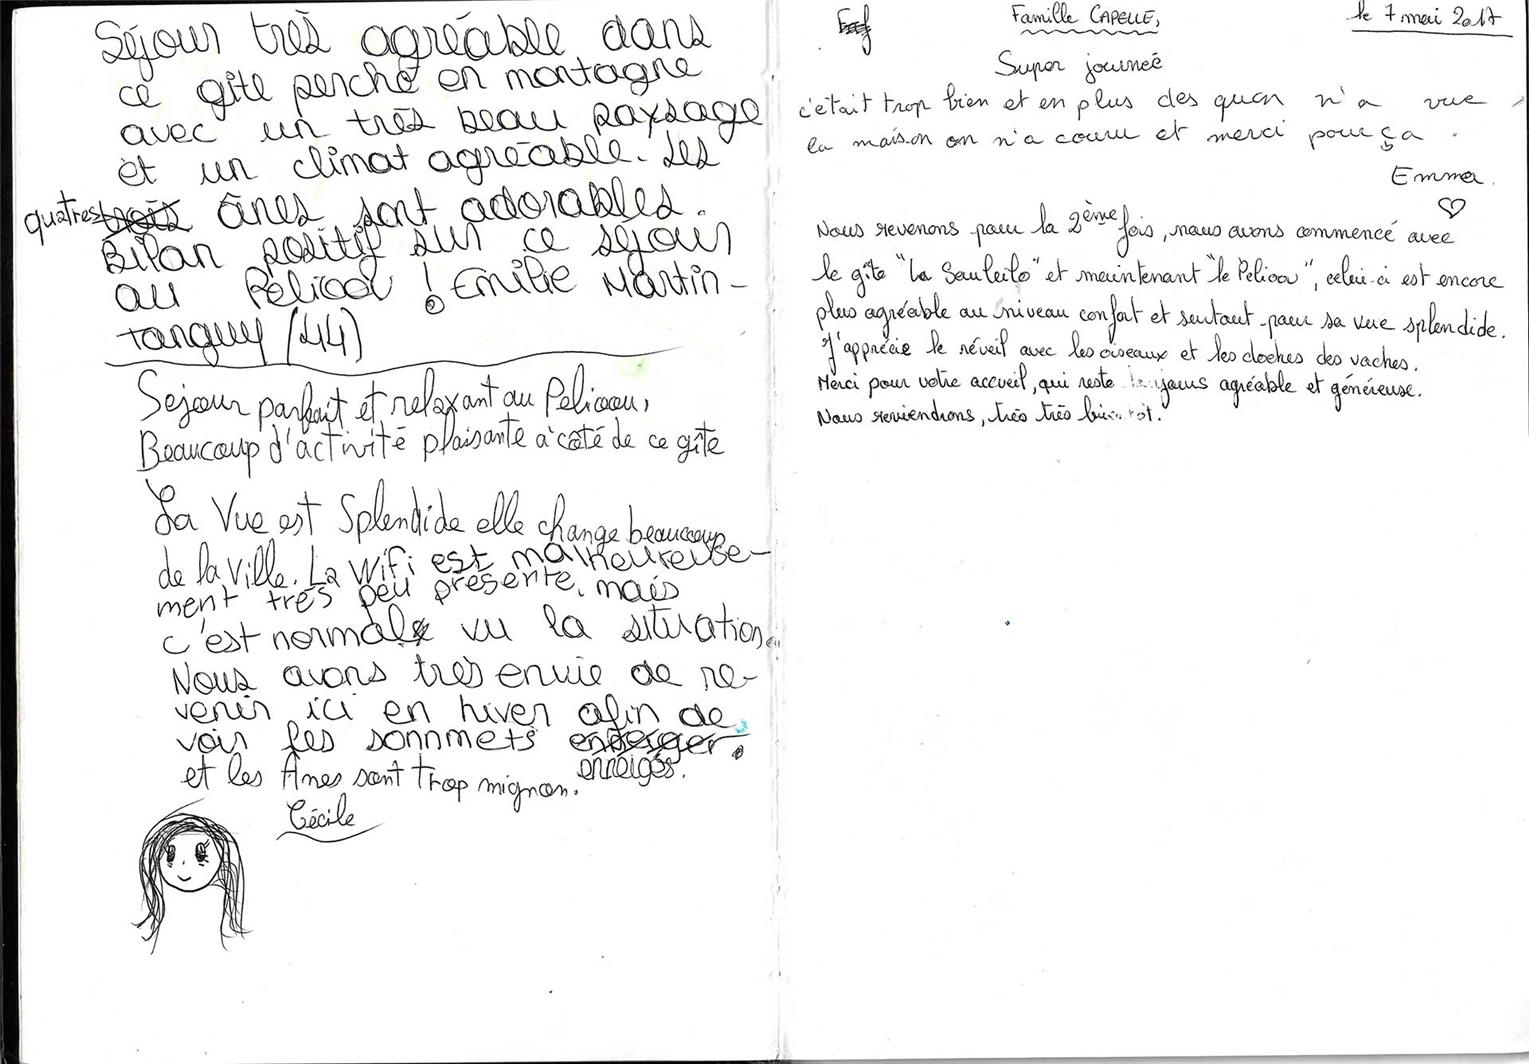 Séjour très agréable dans
ce gîte perché en montagne
avec un très beau paysage
et un climat agréable. Les
quatres trois ânes sont adorables.
Bilan positif sur ce séjour
au Pélicou ! Emilie Martin-
tanguy (44)
Sejour parfait et relaxant au Pelicou,
Beaucoup d'activité plaisante à côté de ce gîte
La Vue est Splendide elle change beaucoup
de la ville. La Wifi est malheureuse-
ment très peu présente, mais
c'est normal vu la situation.
Nous avons très envie de re-
venir ici en hiver afin de
voir les sonmmets
enneigés.
et les Ânes sont trop mignon.
Cécile
Famille CAPELLE,
le 7 mai 2017
Super journeé
c'était trop bien et en plus des quon n'a vue
la maison on n'a couru et merci pour ça.
Emma.
Nous revenons pour la 2ème fois, nous avons commencé avec
le gîte "La Souleilo" et maintenant "le Pelicou", celui-ci est encore
plus agréable au niveau confort et surtout pour sa vue splendide.
J'apprécie le réveil avec les oiseaux et les cloches des vaches.
Merci pour votre accueil, qui reste toujours agréable et généreuse.
Nous reviendrons, très très bientôt.